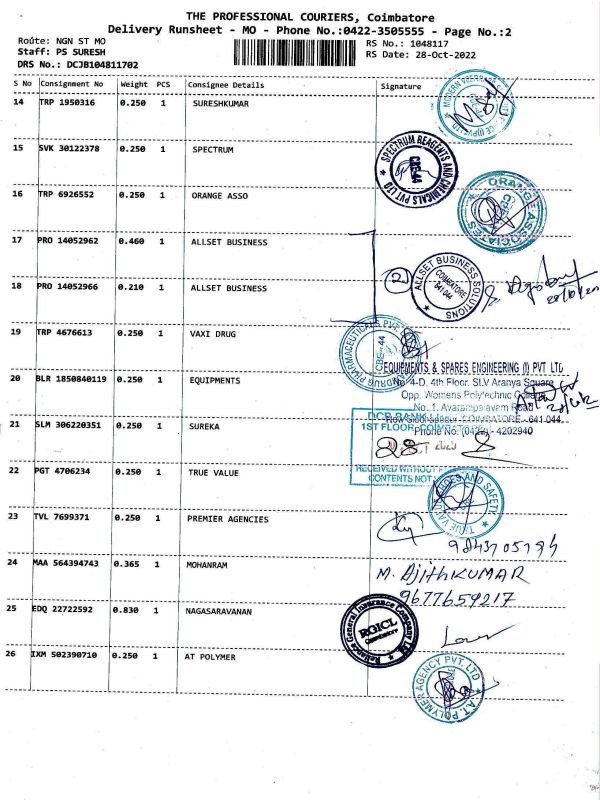 THE PROFESSIONAL COURIERS, Coimbatore
Delivery Runsheet - MO - Phone No.:0422-3505555 - Page No.:2
Route: NGN ST MO
RS No.: 1048117
Staff: PS SURESH
RS Date: 28-Oct-2022
DRS No.: DCJB104811702
S No Consignment No Weight PCS Consignee Details Signature
14 TRP 1950316 0.250 1 SURESHKUMAR
15 SVK 30122378 0.250 1 SPECTRUM
SPECTRUM REAGENTS AND CHEMICALS PVT LTD
CBE-44
16 TRP 6926552 0.250 1 ORANGE ASSO
ORANGE ASSOCIATES
17 PRO 14052962 0.460 1 ALLSET BUSINESS
18 PRO 14052966 0.210 1 ALLSET BUSINESS
2
ALLSET BUSINESS SOLUTIONS
COIMBATORE
641 044
19 TRP 4676613 0.250 1 VAXI DRUG
PHARMACEUTICALS PVT.
CBE-44
EQUIPMENTS & SPARES ENGINEERING (I) PVT LTD
20 BLR 1850840119 0.250 1 EQUIPMENTS
No 4-D, 4th Floor, SLV Aranya Square
Opp. Womens Polytechnic College
No. 1, Avarampalayam Road
COIMBATORE - 641 044
Phone No: (0422) - 4202940
21 SLM 306220351 0.250 1 SUREKA
DCB BANK
1ST FLOOR,
RECEIVED WITHOUT
CONTENTS NOT
22 PGT 4706234 0.250 1 TRUE VALUE
AND SAFETY
23 TVL 7699371 0.250 1 PREMIER AGENCIES
24 MAA 564394743 0.365 1 MOHANRAM
M. AJITHKUMAR
9677659217
25 EDQ 22722592 0.830 1 NAGASARAVANAN
Reliance General Insurance Company Ltd
RGICL
Coimbatore
26 IXM 502390710 0.250 1 AT POLYMER
A.T. POLYMER AGENCY PVT. LTD